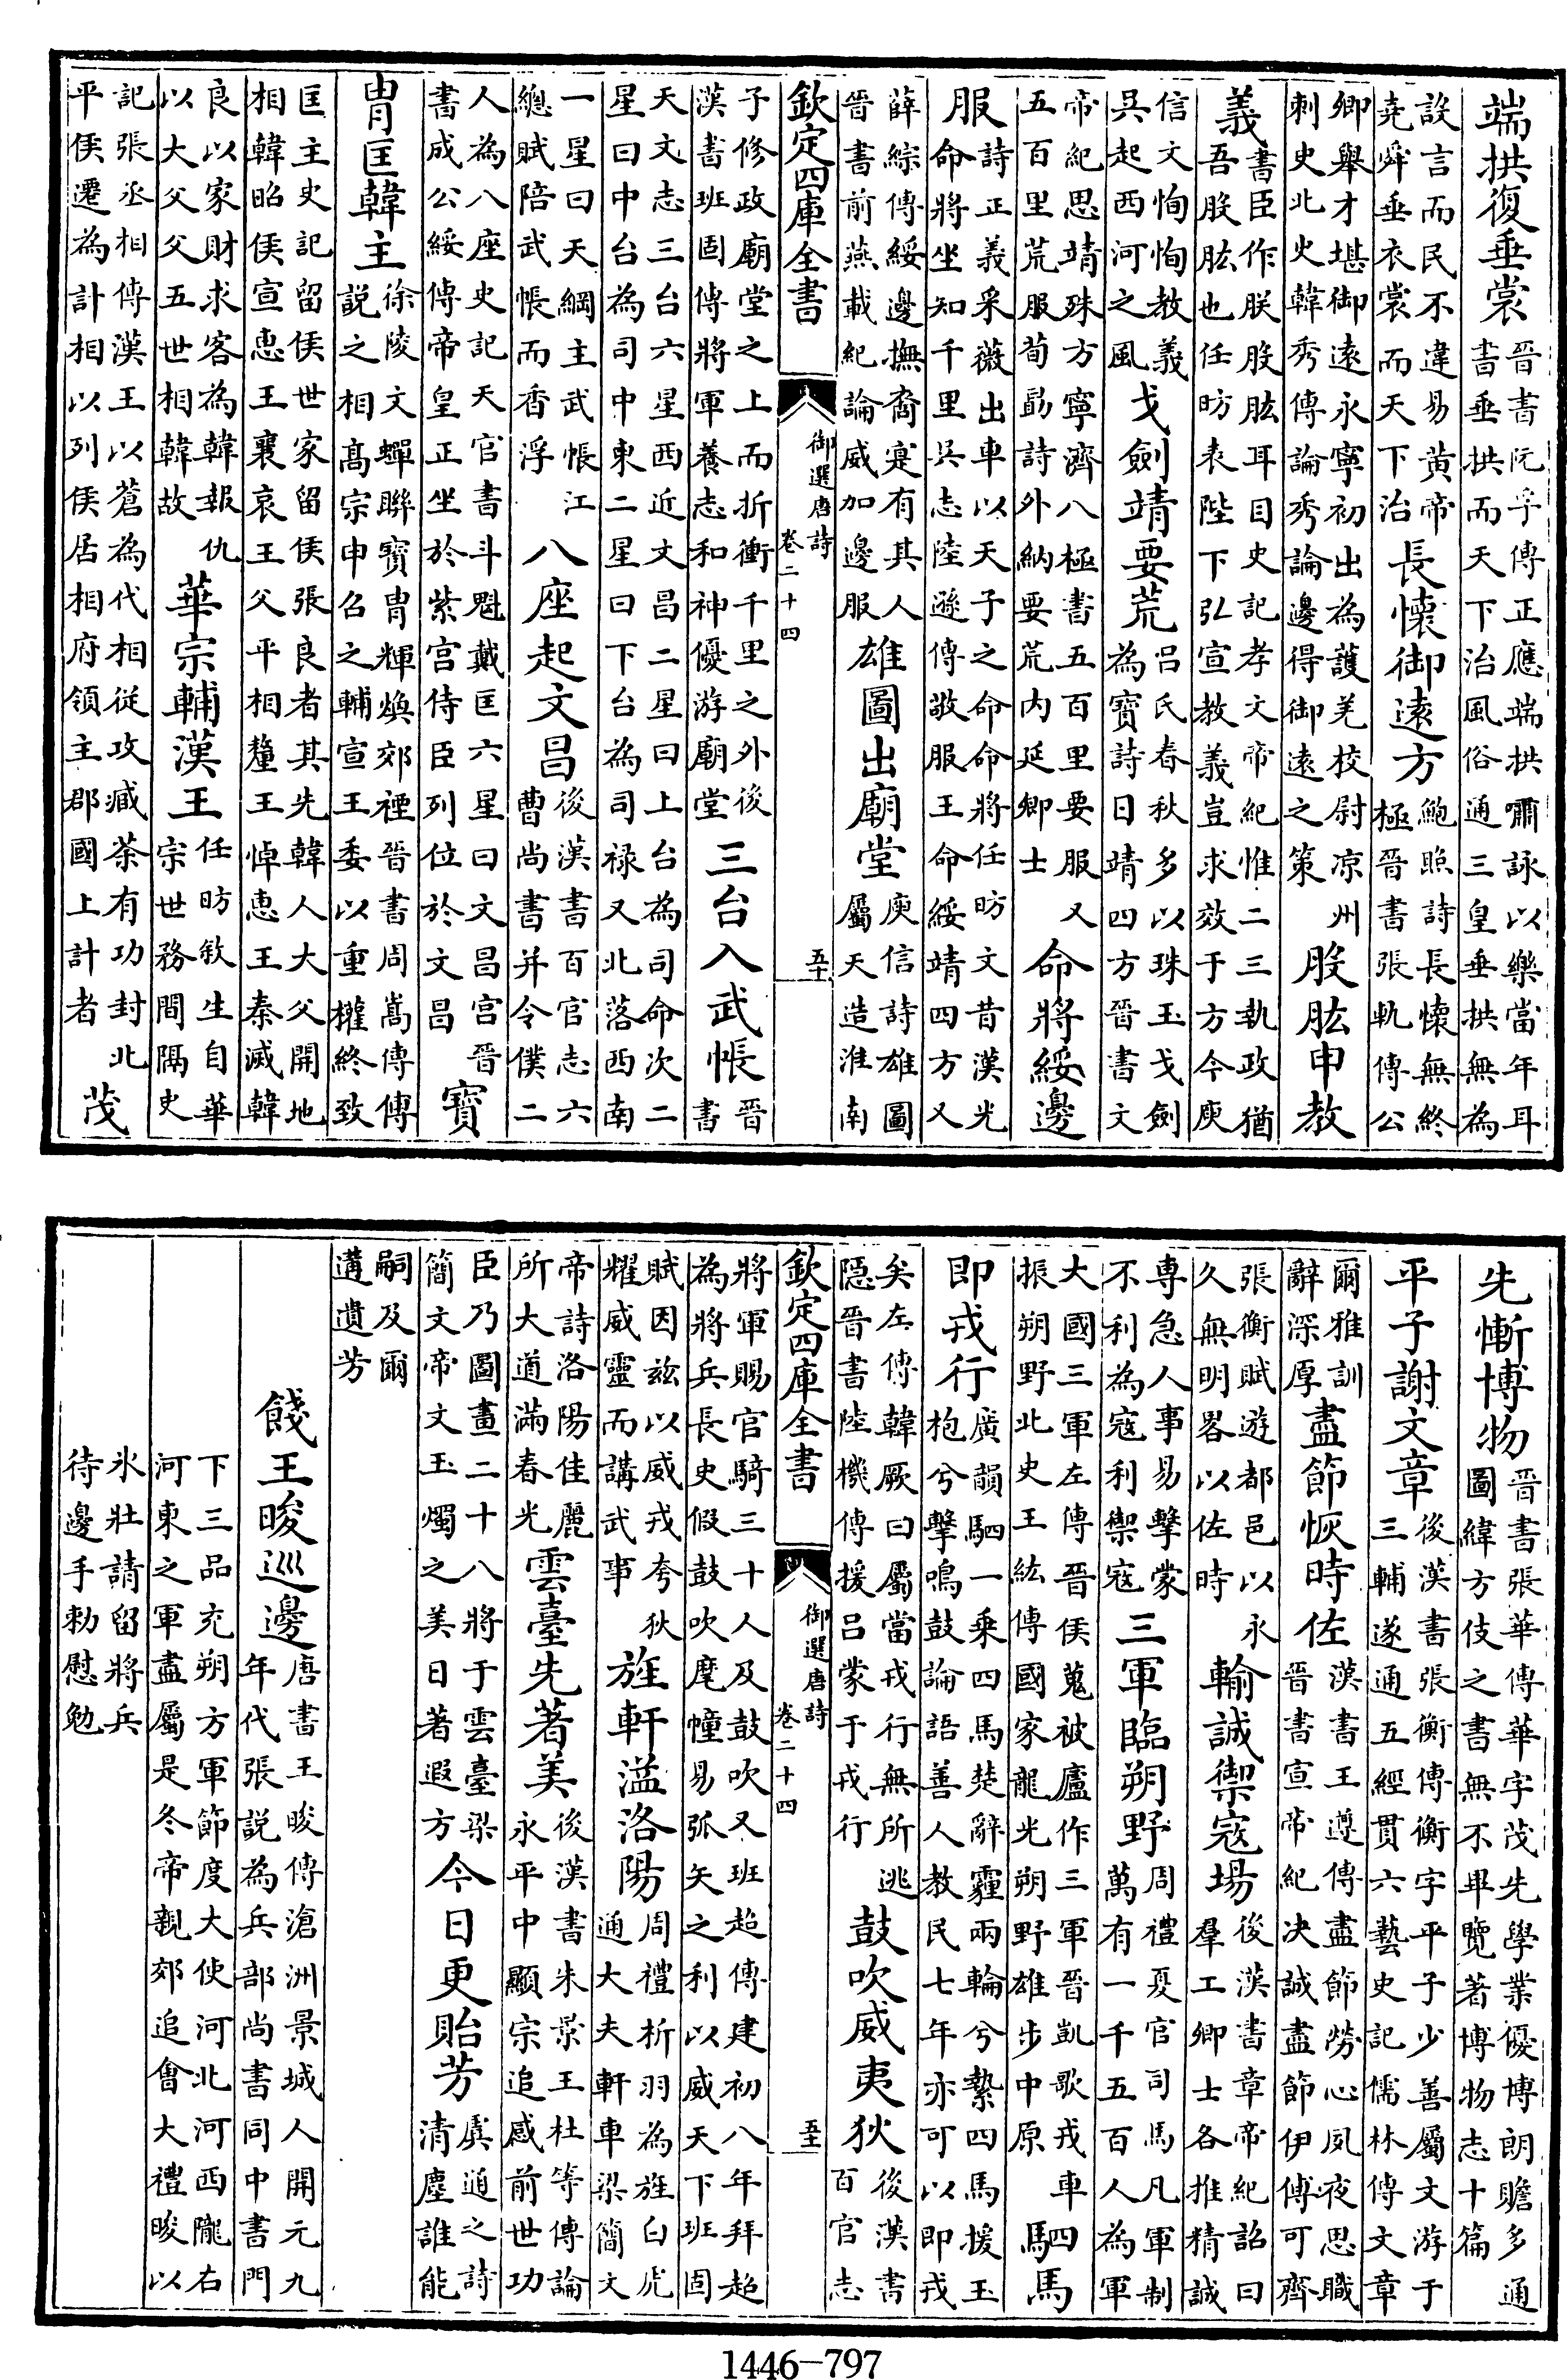 端拱復垂裳晉書阮孚傳正應端拱嘯詠以樂當年耳書垂拱而天下治風俗通三皇垂拱無為
設言而民不違易黃帝堯舜垂衣裳而天下治長懷御遠方鮑照詩長懷無終極晉書張軌傳公
卿舉才堪御遠永寧初出為護羌校尉凉州刺史北史韓秀傳論秀論邊得御遠之策股肱申教
義書臣作朕股肱耳目史記孝文帝紀惟二三執政猶吾股肱也任昉表陛下弘宣教義豈求效于方今庾
信文恂恂教義呉起西河之風戈劍靖要荒吕氏春秋多以珠玉戈劍為寶詩日靖四方晉書文
帝紀思靖殊方寧濟八極書五百里要服又五百里荒服荀勗詩外納要荒内延卿士命將綏邊
服詩正義采薇出車以天子之命命將任昉文昔漢光命將坐知千里呉志陸遜傳敬服王命綏靖四方又
薛綜傳綏邊撫裔寔有其人晉書前燕載紀論威加邊服雄圖出廟堂庾信詩雄圖屬天造淮南
欽定四庫全書 御選唐詩 卷二十四 五十
子修政廟堂之上而折衝千里之外後漢書班固傳將軍養志和神優游廟堂三台入武帳晉書
天文志三台六星西近文昌二星曰上台為司命次二星曰中台為司中東二星曰下台為司禄又北落西南
一星曰天綱主武帳江總賦陪武帳而香浮八座起文昌後漢書百官志六曹尚書并令僕二
人為八座史記天官書斗魁戴匡六星曰文昌宫晉書成公綏傳帝皇正坐於紫宫侍臣列位於文昌寶
胄匡韓主徐陵文蟬聯寶胄輝煥郊禋晉書周嵩傳傅說之相高宗申召之輔宣王委以重權終致
匡主史記留侯世家留侯張良者其先韓人大父開地相韓昭侯宣惠王襄哀王父平相釐王悼惠王秦滅韓
良以家財求客為韓報仇以大父父五世相韓故華宗輔漢王任昉敘生自華宗世務間隔史
記張丞相傳漢王以蒼為代相從攻臧荼有功封北平侯遷為計相以列侯居相府領主郡國上計者茂
先慚博物晉書張華傳華字茂先學業優博朗贍多通圖緯方伎之書無不畢覽著博物志十篇
平子謝文章後漢書張衡傳衡字平子少善屬文游于三輔遂通五經貫六藝史記儒林傳文章
爾雅訓辭深厚盡節恢時佐漢書王遵傳盡節勞心夙夜思職晉書宣帝紀决誠盡節伊傅可齊
張衡賦遊都邑以永久無明畧以佐時輸誠禦寇場後漢書章帝紀詔曰羣工卿士各推精誠
專急人事易擊蒙不利為寇利禦寇三軍臨朔野周禮夏官司馬凡軍制萬有一千五百人為軍
大國三軍左傳晉侯蒐被廬作三軍晉凱歌戎車振朔野北史王紘傳國家龍光朔野雄步中原駟馬
即戎行廣韻駟一乘四馬楚辭霾兩輪兮縶四馬援玉枹兮擊鳴鼓論語善人教民七年亦可以即戎
矣左傳韓厥曰屬當戎行無所逃隠晉書陸機傳援吕蒙于戎行鼓吹威夷狄後漢書百官志
欽定四庫全書 御選唐詩 卷二十四 五十一
將軍賜官騎三十人及鼓吹又班超傳建初八年拜超為將兵長史假鼓吹麾幢易弧矢之利以威天下班固
賦因兹以威戎夸狄耀威靈而講武事旌軒溢洛陽周禮析羽為旌白虎通大夫軒車梁簡文
帝詩洛陽佳麗所大道滿春光雲臺先著美後漢書朱景王杜等傳論永平中顯宗追感前世功
臣乃圖畫二十八將于雲臺梁簡文帝文玉燭之美日著遐方今日更貽芳虞逌之詩清塵誰能
嗣及爾遘遺芳
餞王晙巡邊唐書王晙傳滄洲景城人開元九年代張説為兵部尚書同中書門
下三品充朔方軍節度大使河北河西隴右河東之軍盡屬是冬帝親郊追會大禮晙以
氷壯請留將兵待邊手勅慰勉
1446—797